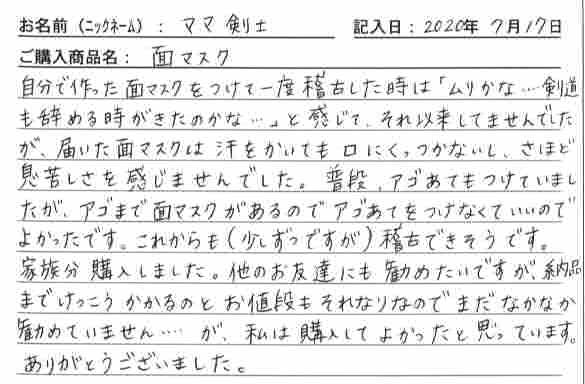 お名前（ニックネーム）： ママ剣士 記入日：2020年 7月17日
ご購入商品名： 面マスク
自分で作った面マスクをつけて一度稽古した時は「ムリかな…剣道
も辞める時がきたのかな…」と感じて、それ以来してませんでした
が、届いた面マスクは汗をかいても口にくっつかないし、さほど
息苦しさを感じませんでした。普段、アゴあてもつけていまし
たが、アゴまで面マスクがあるのでアゴあてをつけなくていいので
よかったです。これからも（少しずつですが）稽古できそうです。
家族分購入しました。他のお友達にも勧めたいですが、納品
までけっこうかかるのとお値段もそれなりなのでまだなかなか
勧めていません…‥が、私は購入してよかったと思っています。
ありがとうございました。